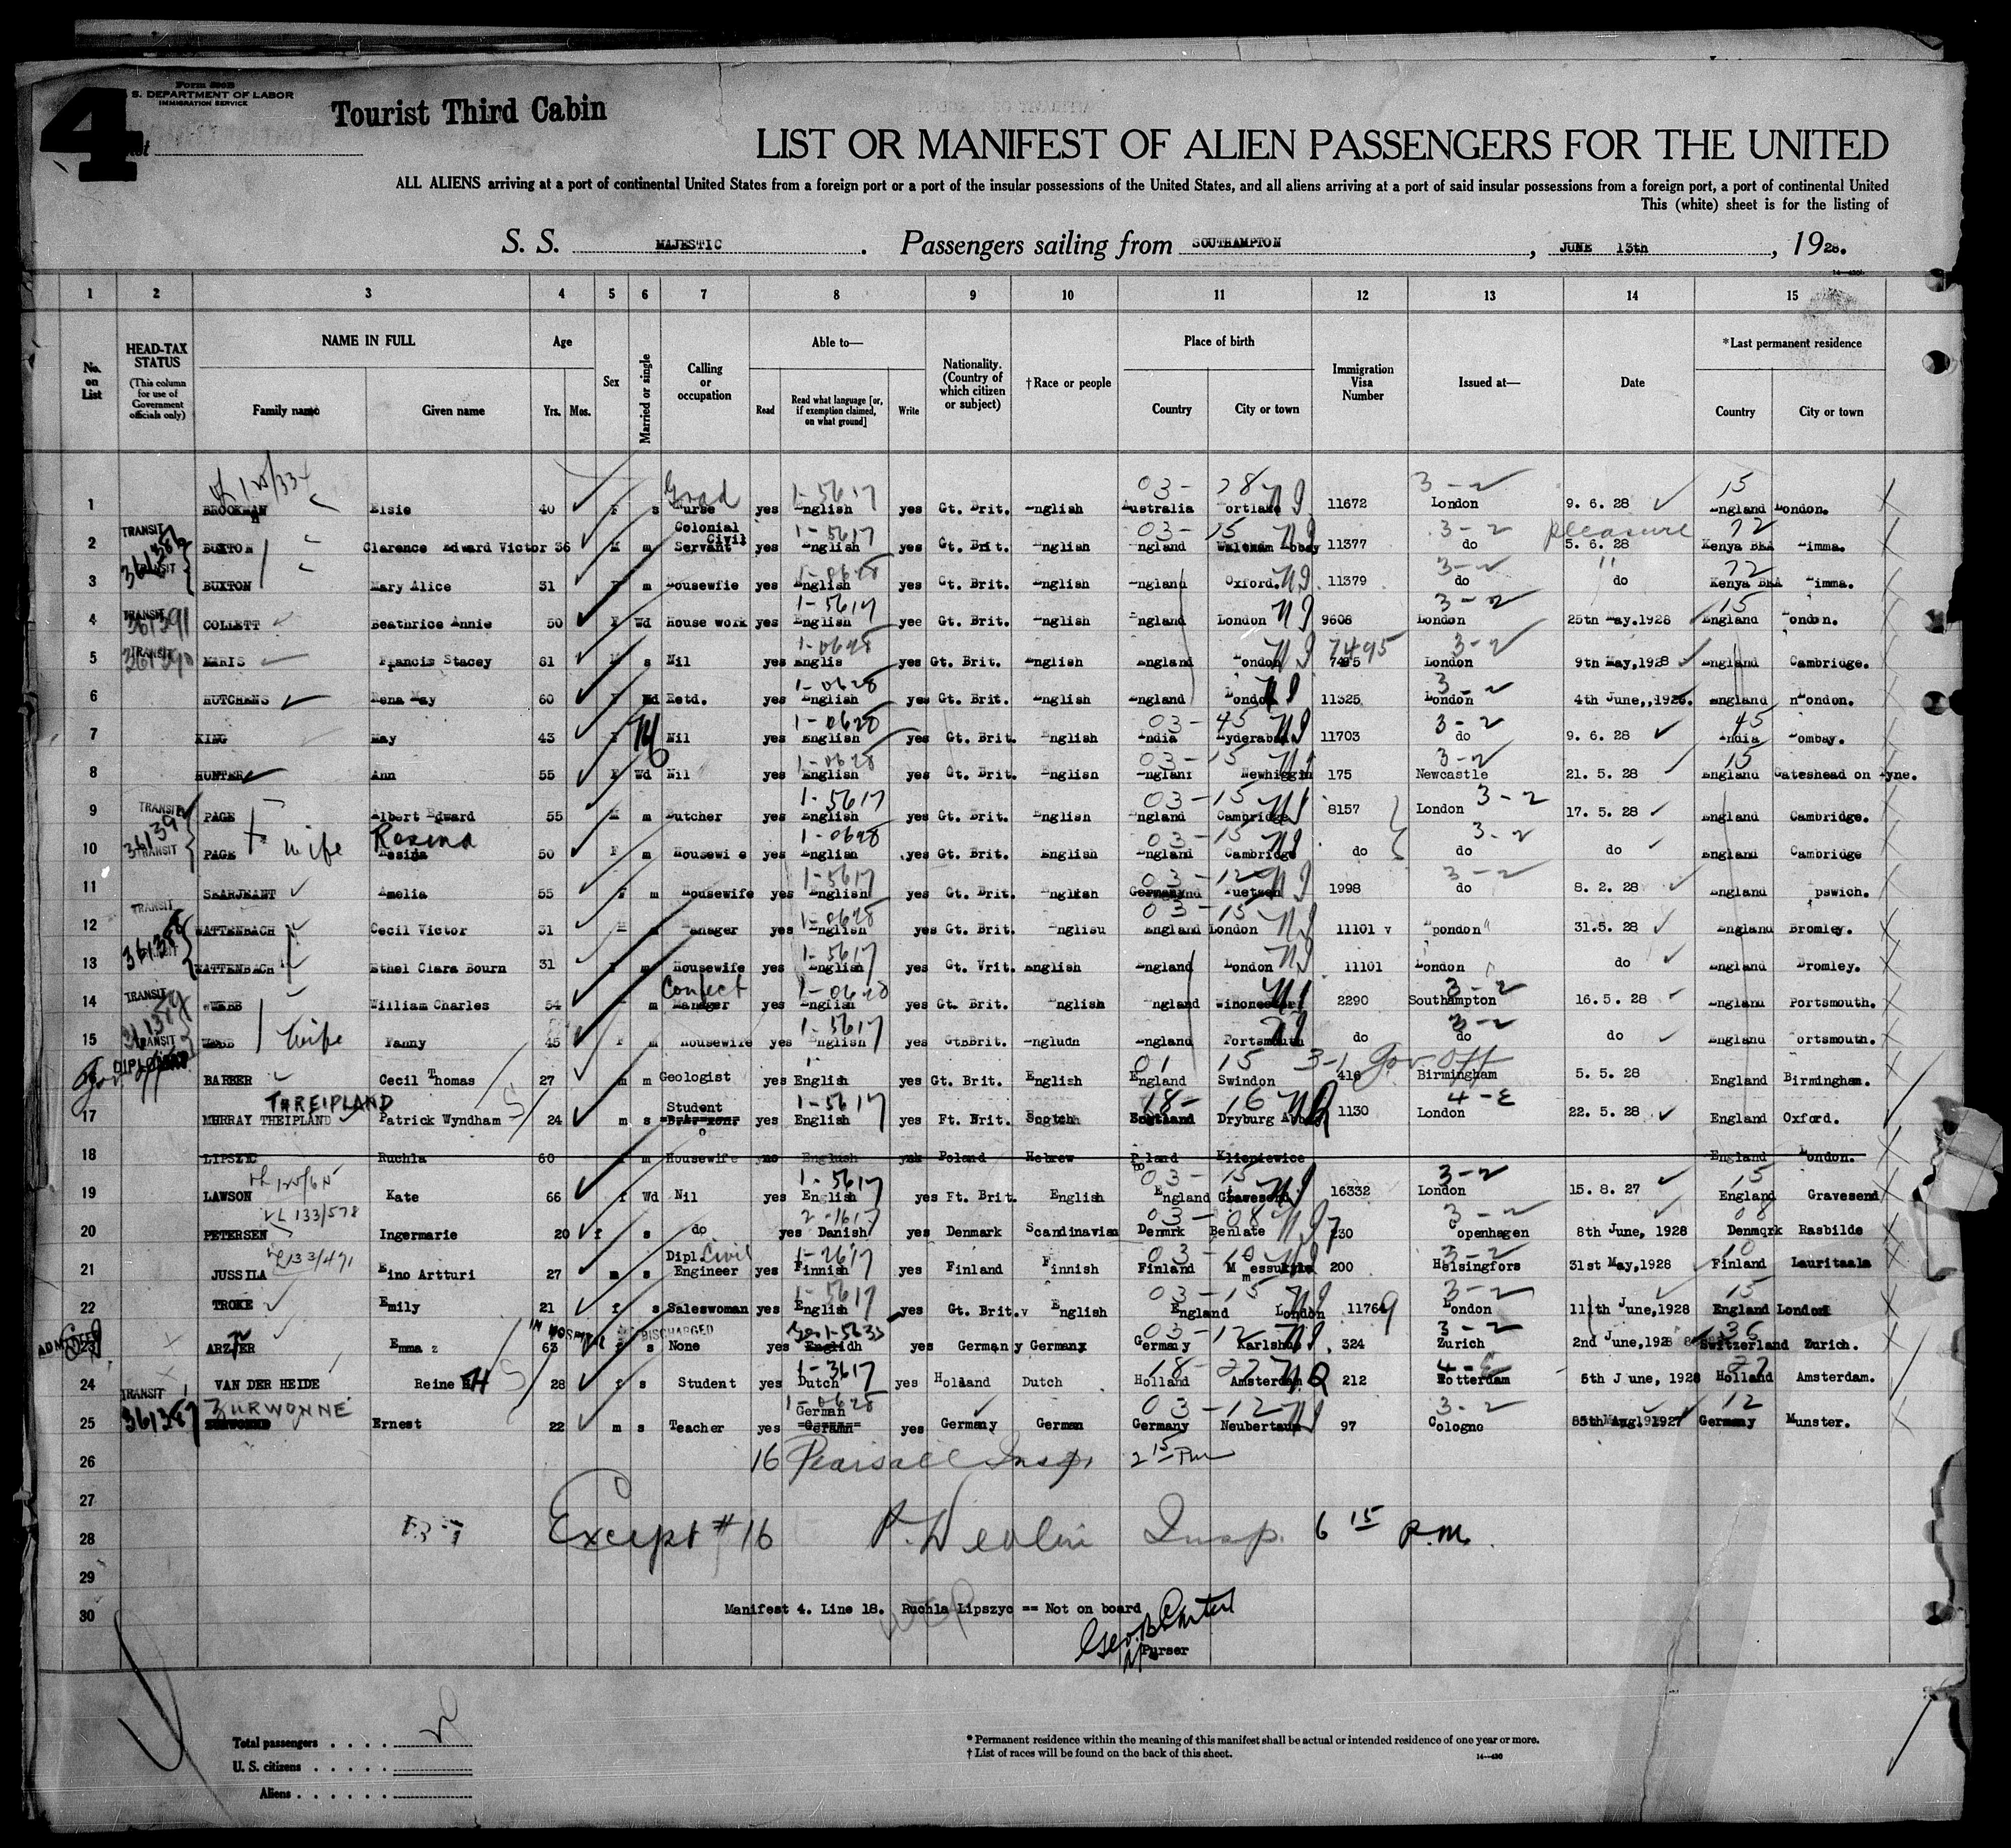 4
Form 500B
S. DEPARTMENT OF LABOR
IMMIGRATION SERVICE
Tourist Third Cabin
LIST OR MANIFEST OF ALIEN PASSENGERS FOR THE UNITED
ALL ALIENS arriving at a port of continental United States from a foreign port or a port of the insular possessions of the United States, and all aliens arriving at a port of said insular possessions from a foreign port, a port of continental United
This (white) sheet is for the listing of
S. S. MAJESTIC. Passengers sailing from SOUTHAMPTON, JUNE 13th, 1928.
1 2 3 4 5 6 7 8 9 10 11 12 13 14 15
No. on List
HEAD-TAX STATUS (This column for use of Government officials only)
NAME IN FULL Family name Given name
Age Yrs. Mos.
Sex
Married or single
Calling or occupation
Able to— Read Read what language [or, if exemption claimed, on what ground] Write
Nationality. (Country of which citizen or subject)
†Race or people
Place of birth Country City or town
Immigration Visa Number
Issued at—
Date
*Last permanent residence Country City or town
Grad 1-5617 03- 78 NI 3-2 15
1 BROOKMAN Elsie 40 F s Nurse yes English yes Gt. Brit. English Australia Portland 11672 London 9. 6. 28 England London.
TRANSIT Colonial Civil 1-5617 03-15 NI 3-2 pleasure 72
2 BUXTON Clarence Edward Victor 36 M m Servant yes English yes Gt. Brit. English England Waltham Abbey 11377 do 5. 6. 28 Kenya BEA Limma.
TRANSIT 1-0628 NI 3-2 " 72
3 BUXTON Mary Alice 31 F m Housewfie yes English yes Gt. Brit. English England Oxford. 11379 do do Kenya BEA Limma.
TRANSIT 361391 1-5617 NI 3-2 15
4 COLLETT Beathrice Annie 50 F Wd House work yes English yee Gt. Brit. English England London 9608 London 25th May,1928 England London.
TRANSIT 361390 1-0628 NI 7495 3-2
5 MARIS Francis Stacey 61 M s Nil yes Englis yes Gt. Brit. English England London 7495 London 9th May,1928 England Cambridge.
1-0628 NI 3-2
6 HUTCHENS Rena May 60 F Wd Retd. yes English yes Gt. Brit. English England London 11325 London 4th June,,1928. England nLondon.
1-0628 03-45 NI 3-2 45
7 KING May 43 F M Nil yes English yes Gt. Brit. English India Hyderabad 11703 do 9. 6. 28 India Bombay.
1-0628 03-15 NI 3-2 15
8 HUNTER Ann 55 F Wd Nil yes English yes Gt. Brit. English England Newhiggin 175 Newcastle 21. 5. 28 England Gateshead on Tyne.
TRANSIT 1-5617 03-15 NI 3-2
9 PAGE Albert Edward 55 M m Butcher yes English yes Gt. Brit. English England Cambridge 8157 London 17. 5. 28 England Cambridge.
TRANSIT wife Rosina 1-0628 03-15 NI 3-2
10 PAGE Rosina 50 F m Housewi e yes English yes Gt. Brit. English England Cambridge do do do England Cambridge
1-5617 03-12 NI 3-2
11 SKARJEANT Amelia 55 F m Housewife yes English yes Gt. Brit. English Germany 1998 do 8. 2. 28 England Ipswich.
TRANSIT 1-0628 03-15 NI
12 WATTENBACH Cecil Victor 31 M m Manager yes English yes Gt. Brit. Englisu England London 11101 v Lpondon 31.5. 28 England Bromley.
1-5617 NI
13 WATTENBACH Ethel Clara Bourn 31 F m Housewife yes English yes Gt. Vrit. English England London 11101 London do England Bromley.
TRANSIT Confect 1-0628 NI 3-2
14 WEBB William Charles 54 m Manager yes English yes Gt. Brit. English England Winchester 2290 Southampton 16. 5. 28 England Portsmouth.
TRANSIT wife 1-5617 NI 3-2
15 WEBB Fanny 45 F m Housewife yes English yes GtBBrit. Engludn England Portsmouth do do do England Portsmouth.
DIPLOMAT Gov. off 01 15 3-1 Gov Off
BARBER Cecil Thomas 27 m m Geologist yes English yes Gt. Brit. English England Swindon 416 Birmingham 5. 5. 28 England Birmingham.
THREIPLAND Student 1-5617 18-16 NQ 4-E
17 MURRAY THEIPLAND Patrick Wyndham 24 m s yes English yes Ft. Brit. Scotch Scotland Dryburg Abbey 1130 London 22. 5. 28 England Oxford.
18 LIPSZYC Ruchla 60 f m Housewife yno English ynk Poland Hebrew Poland Klieniewice England London.
1-5617 03-15 NI 3-2 15
19 LAWSON Kate 66 f Wd Nil yes English yes Ft. Brit. English England Gravesend 16332 London 15. 8. 27 England Gravesend
133/578 2-1617 03-08 NI 3-2 08
20 PETERSEN Ingermarie 20 f s do yes Danish yes Denmark Scandinavian Denmrk Benlate 730 Copenhagen 8th June, 1928 Denmqrk Rasbilde
133/491 Dipl. Civil 1-2617 03-10 NI 3-2 10
21 JUSSILA Eino Artturi 27 m s Engineer yes Finnish yes Finland Finnish Finland 200 Helsingfors 31st May,1928 Finland Lauritsala
1-5617 03-15 NI 3-2 15
22 TROKE Emily 21 f s Saleswoman yes English yes Gt. Brit.v English England London 11769 London 11th June,1928 England London
ADMITTED IN HOSPITAL DISCHARGED 03-12 NI 3-2 36
23 ARZNER Emma z 63 f s None yes Englidh yes Germany Germany Germany Karlshue 324 Zurich 2nd June,1928 Switzerland Zurich.
1-3617 18-22 NQ 4-E 22
24 VAN DER HEIDE Reine H 28 f s Student yes Dutch yes Holland Dutch Holland Amsterdam 212 Rotterdam 5th June, 1928 Holland Amsterdam.
TRANSIT 361387 ZURWONNE 1-0628 German 03-12 NI 3-2 12
25 Ernest 22 m s Teacher yes German yes Germany German Germany 97 Cologne 1927 Germany Munster.
26 16 Pearsall Insp. 2 15 PM
27
28 Except #16 Insp. 6 15 P.M.
29
30 Manifest 4. Line 18. Ruchla Lipszyc == Not on board
Geo. B. Carter
Purser
Total passengers . . . .
U. S. citizens . . . . .
Aliens . . . . . .
* Permanent residence within the meaning of this manifest shall be actual or intended residence of one year or more.
† List of races will be found on the back of this sheet.
14—430